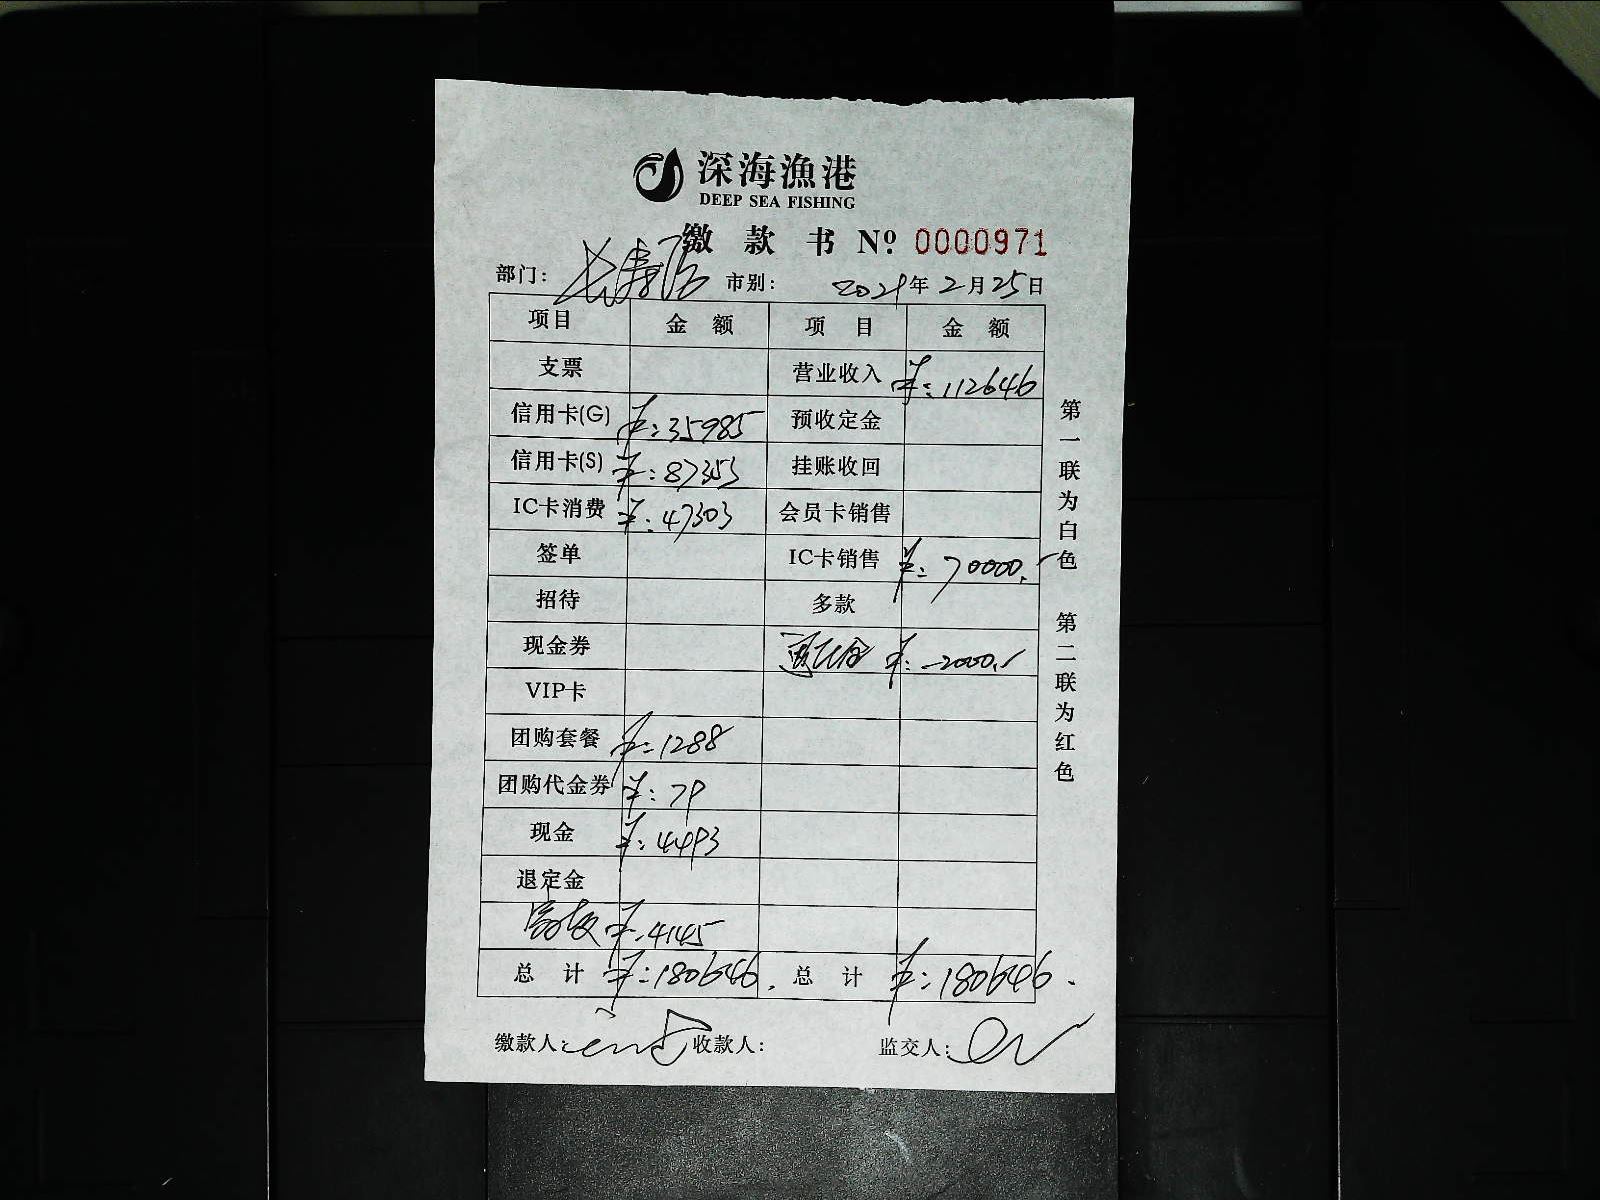 深海漁港
DEEP SEA FISHING
缴款书 Nº 0000971
部门： 长寿 市别： 2021年2月25日
项目 金额 项目 金额
支票 营业收入 ¥:112646
信用卡(G) ¥:35985 预收定金
信用卡(S) ¥:87353 挂账收回
IC卡消费 ¥:47303 会员卡销售
签单 IC卡销售 ¥:70000.-
招待 多款
现金券 退定金 ¥:-2000.-
VIP卡
团购套餐 ¥:1288
团购代金券 ¥:79
现金 ¥:4493
退定金
¥:4145
总计 ¥:180646. 总计 ¥:180646.
缴款人： 收款人： 监交人：
第一联为白色 第二联为红色